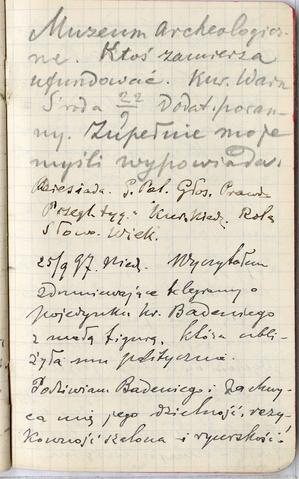 Muzeum Archeologicz-
ne. Ktoś zamierza
ufundować. Kur. Warsz
Środa 22/9 Dodat. poran-
ny. Zupełnie moje
myśli wypowiada.
Biesiada. G. Pol. Głos. Prawda
Przegl. tyg. Kur. Rola
Słowo. Wiek.
25/9 97. Niedz. Wyczytałem
zdumiewające telegramy o
pojedynku hr. Badeniego
z małą figurą, która ubli-
żyła mu politycznie.
Podziwiam Badeniego i zachwy-
ca mię jego dzielność, rezy-
kowność szalona i rycerskość!